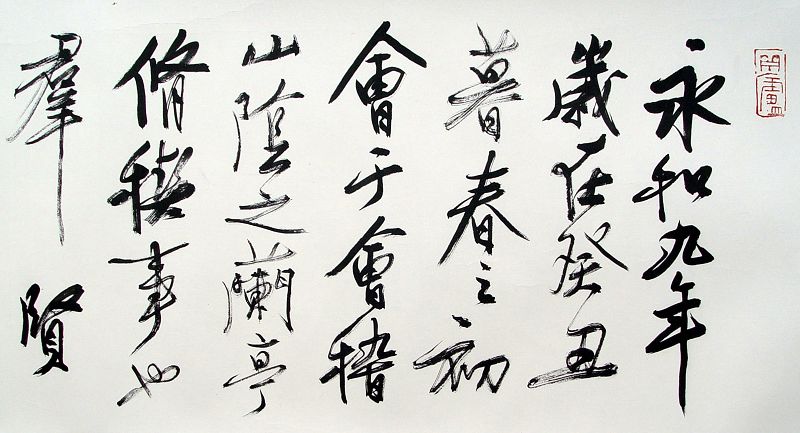 永和九年
歲在癸丑
暮春之初
會于會稽
山陰之蘭亭
脩稧事也
羣賢